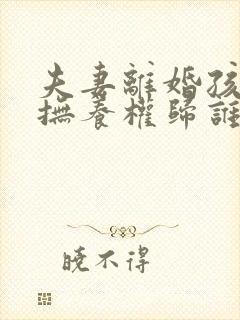 夫妻離婚孩
撫養權歸誰
曉不得